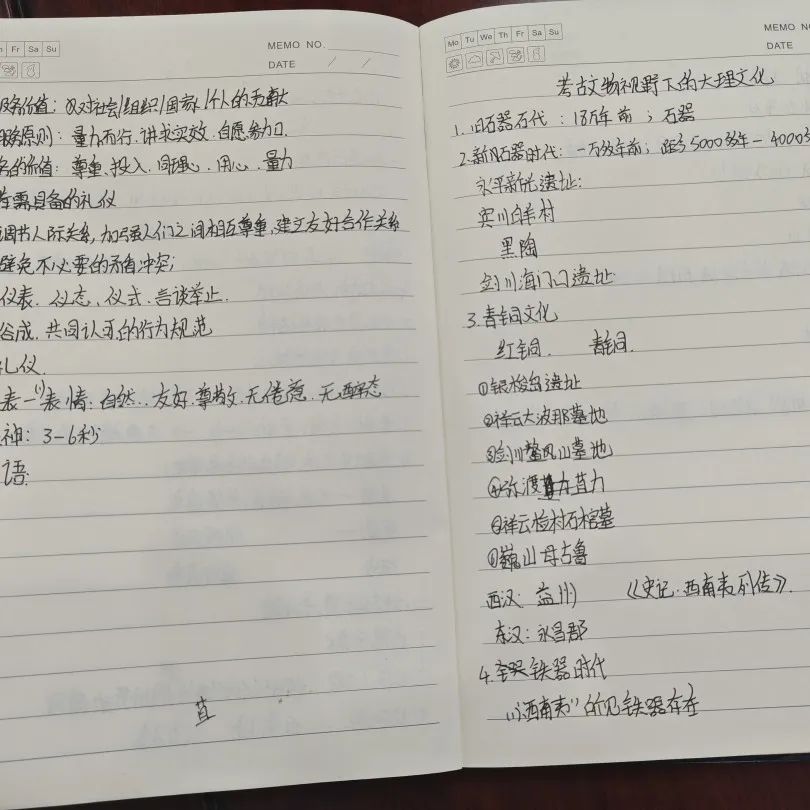 Fr Sa Su
MEMO NO.
DATE / /
服务价值：对社会/组织/国家/个人的贡献
服务原则：量力而行.讲求实效.自愿参加.
的价值：尊重.投入.同理心.用心.量力
需具备的礼仪
调节人际关系,加强人们之间相互尊重,建立友好合作关系
避免不必要的矛盾冲突;
仪表.仪态.仪式.言谈举止.
俗成.共同认可的行为规范
礼仪.
表一(1)表情:自然..友好.尊敬.无倦意.无醉态
神：3-6秒
语:
直
Mo Tu We Th Fr Sa Su
MEMO NO
DATE
考古文物视野下的大理文化
1.旧石器石代：18万年前；石器
2.新石器时代：一万多年前；距今5000多年-4000多
永平新光遗址:
宾川白羊村
黑陶
剑川海门口遗址
3.青铜文化
红铜. 青铜.
①银梭岛遗址
②祥云大波那墓地
③剑川鳌凤山墓地
④弥渡苴力
⑤祥云检村石棺墓
⑥巍山母古鲁
西汉：益州 《史记·西南夷列传》.
东汉：永昌郡
4.铁器时代
“西南夷”的见铁器存在